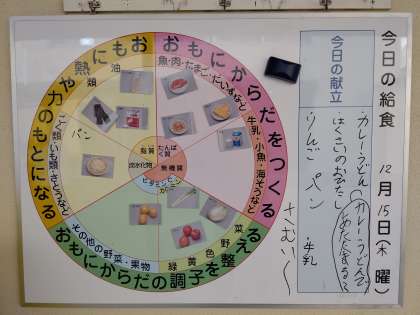 今日の給食
12月15日(木曜)
今日の献立
カレーうどん
はくさいのおひたし
りんご パン 牛乳
カレーうどんで
さむい～
おもにからだをつくる
魚・肉・たまご・だいずなど
牛乳・小魚・海そうなど
おもにからだの調子を整える
緑黄色野菜
その他の野菜・果物
おもに熱や力のもとになる
油類
こく類・いも類・さとうなど
パン
脂質
たんぱく質
炭水化物
無機質
ビタミン